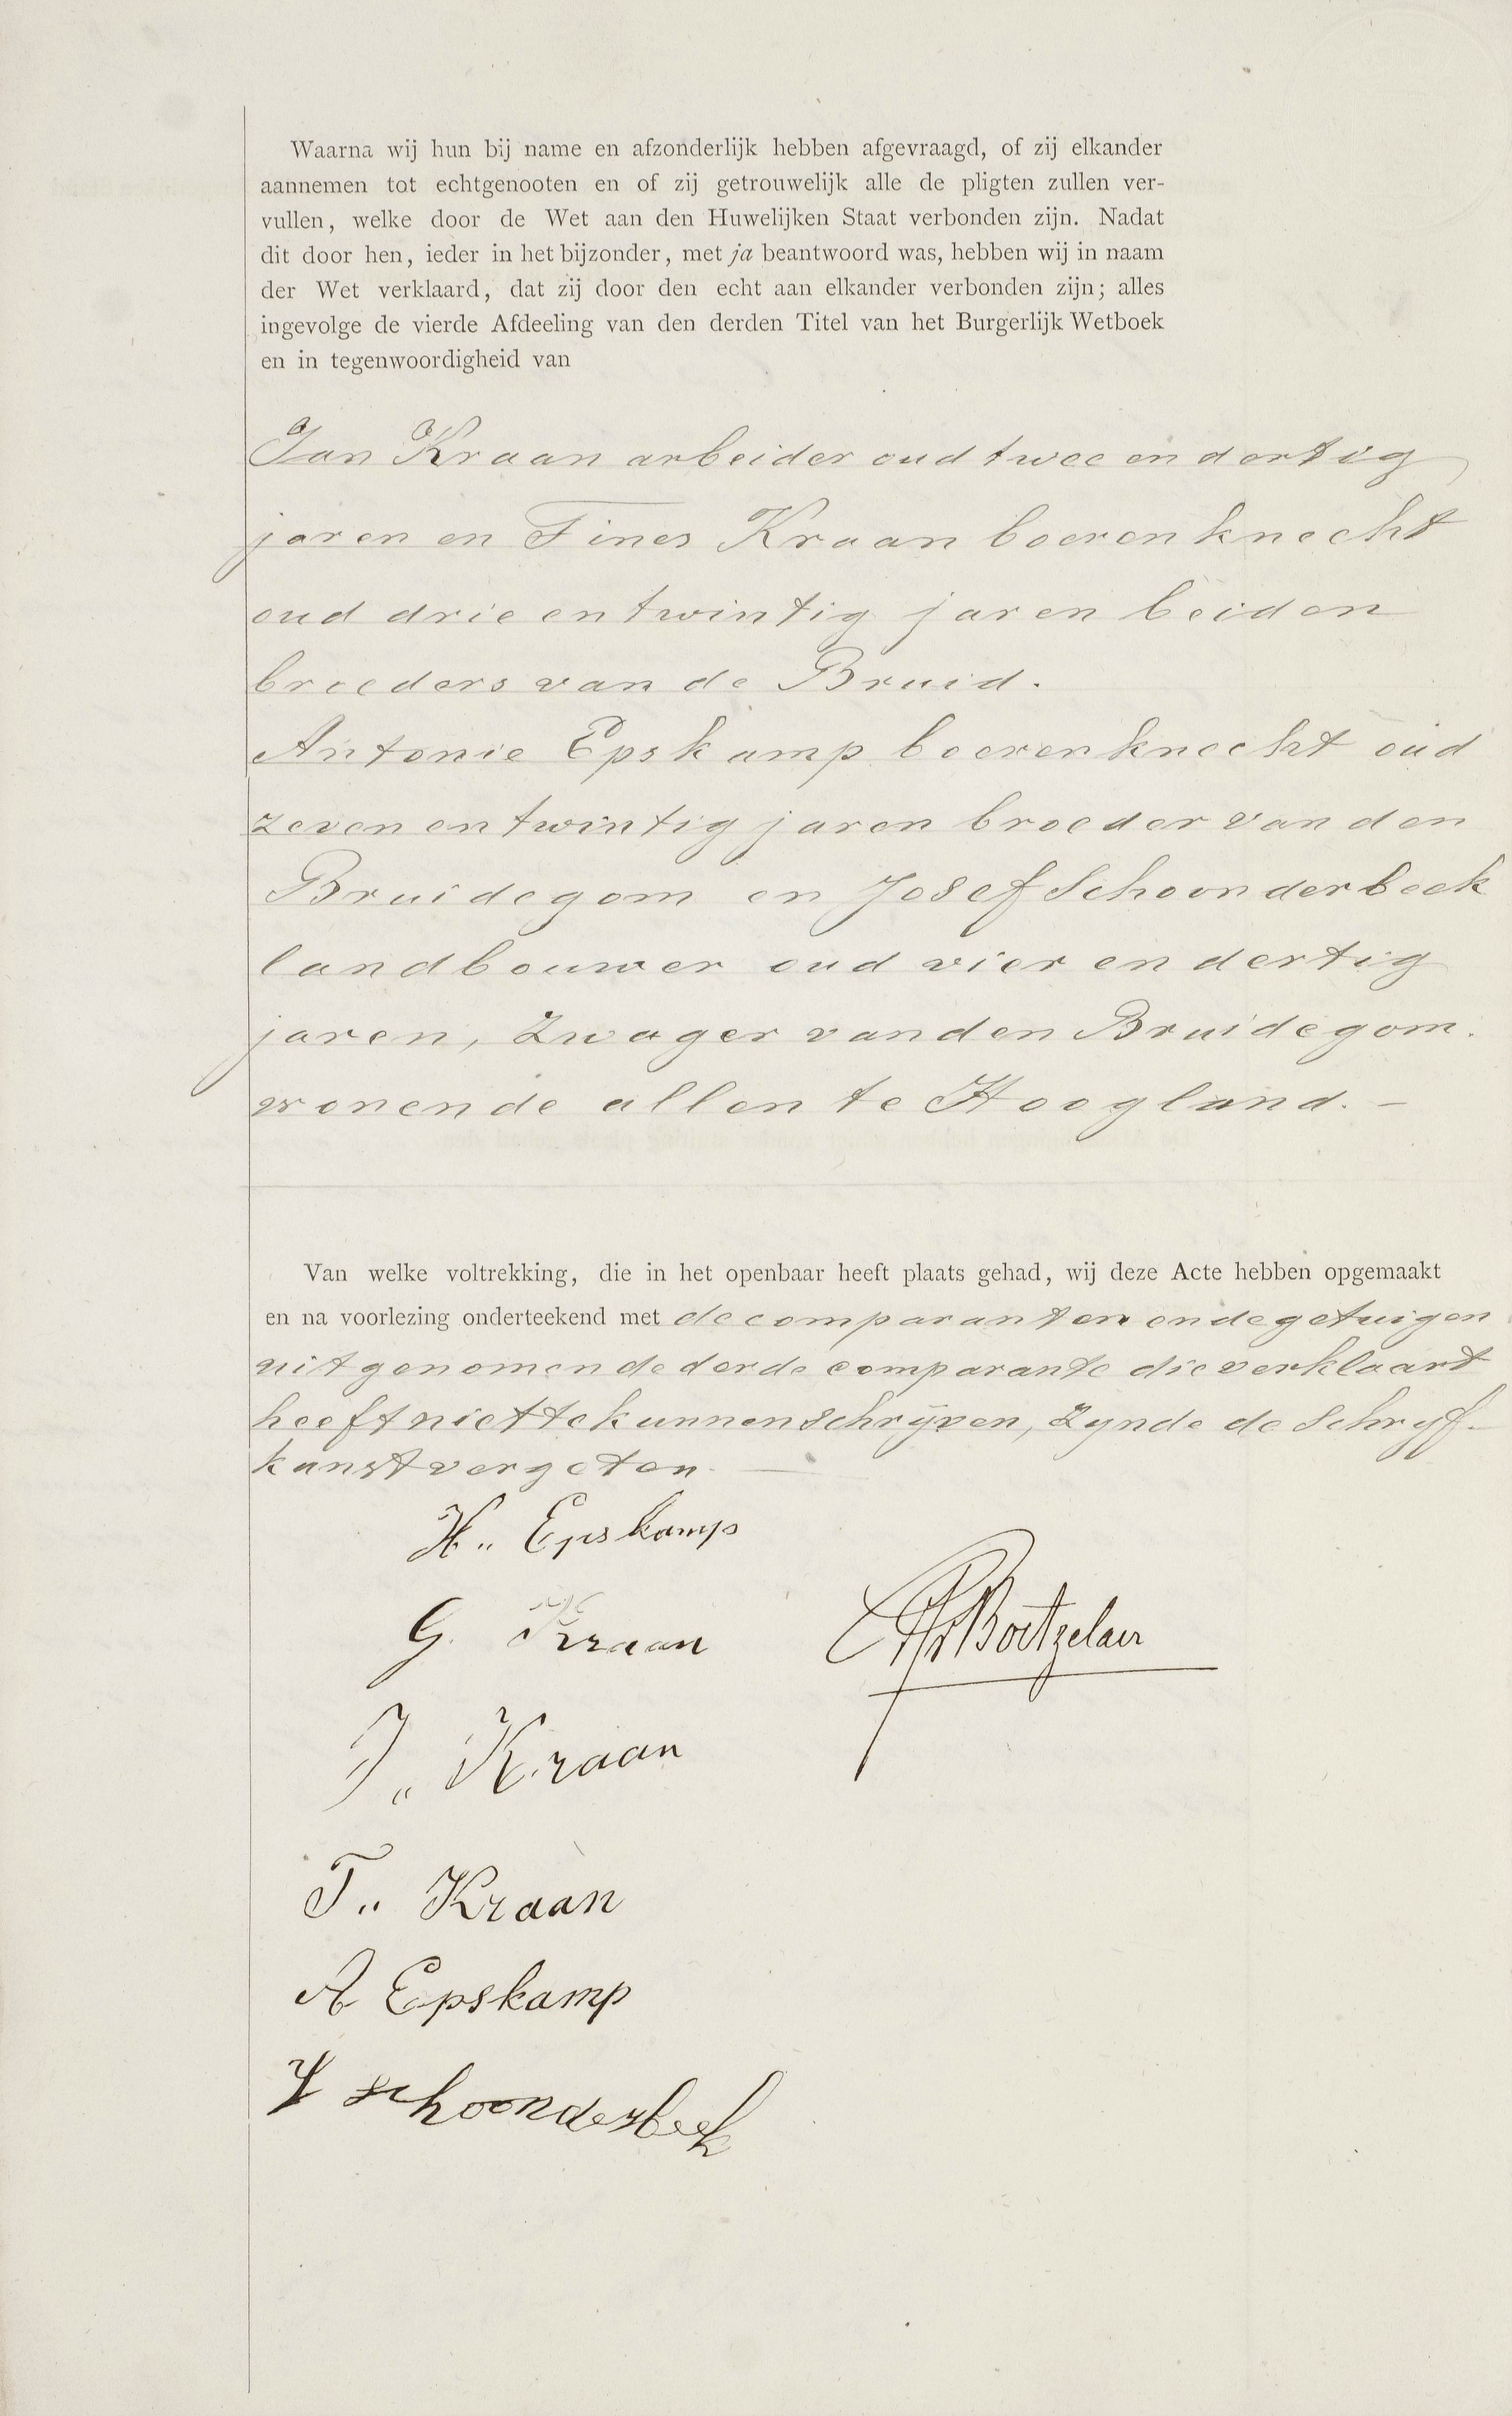 Waarna wij hun bij name en afzonderlijk hebben afgevraagd, of zij elkander
aannemen tot echtgenooten en of zij getrouwelijk alle de pligten zullen ver-
vullen, welke door de Wet aan den Huwelijken Staat verbonden zijn. Nadat
dit door hen, ieder in het bijzonder, met ja beantwoord was, hebben wij in naam
der Wet verklaard, dat zij door den echt aan elkander verbonden zijn; alles
ingevolge de vierde Afdeeling van den derden Titel van het Burgerlijk Wetboek
en in tegenwoordigheid van
Jan Kraan arbeider oud twee en dertig
jaren en Tines Kraan boerenknecht
oud drie en twintig jaren beiden
broeders van de Bruid.
Antonie Epskamp boerenknecht oud
zeven en twintig jaren broeder van den
Bruidegom en Josef Schoonderbeek
landbouwer oud vier en dertig
jaren, Zwager van den Bruidegom.
wonende allen te Hoogland. -
Van welke voltrekking, die in het openbaar heeft plaats gehad, wij deze Acte hebben opgemaakt
en na voorlezing onderteekend met de comparanten en de getuigen
uitgenomen de derde comparante die verklaart
heeft niet te kunnen schrijven, Zynde de Schryf-
kunst vergeten.
H.. Epskamp
G. Kraan
Boetzelaer
J.. Kraan
T.. Kraan
A Epskamp
J schoonderbeek